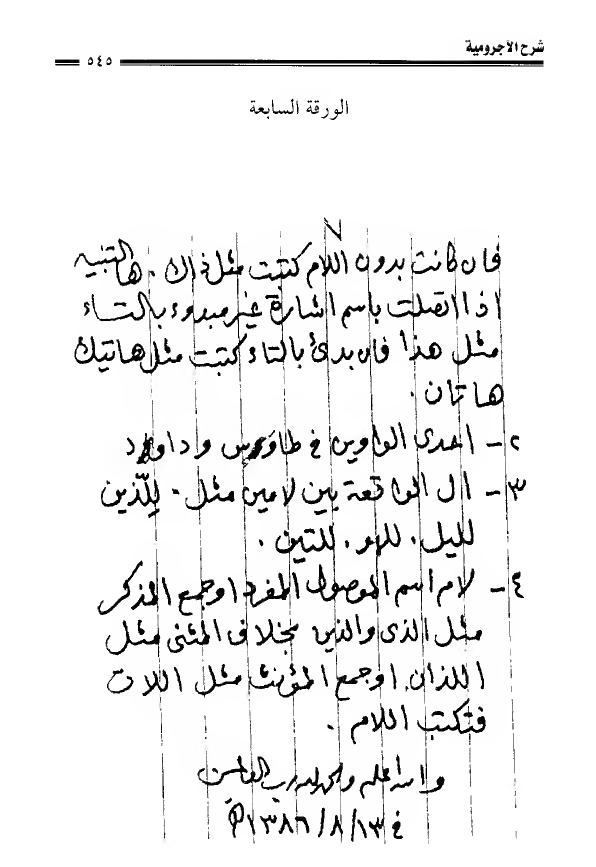 شرح الآجرومية
٥٤٥
الورقة السابعة
٧
فإن كانت بدون اللام كتبت مثل ذاك . ها التنبيه
اذا اتصلت باسم اشارة غير مبدوء بالتاء
مثل هذا فان بدئ بالتاء كتبت مثل هاتيك
هاتان .
٢ - احدى الواوين في طاوس وداود
٣ - ال الواقعة بين لامين مثل . لِلَّذين
لليل . للهو . للتين .
٤ - لام اسم الموصول المفرد او جمع المذكر
مثل الذى والذين بخلاف المثنى مثل
اللذان . او جمع المؤنث مثل اللات
فتكتب اللام .
والله اعلم والحمد لله رب العالمين
في ١٣/٨/١٣٨٦ ﻫ